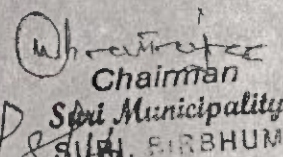 Chairman
Suri Municipality
SURI, BIRBHUM